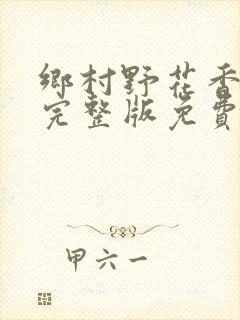 鄉村野花香
完整版免費
甲六一